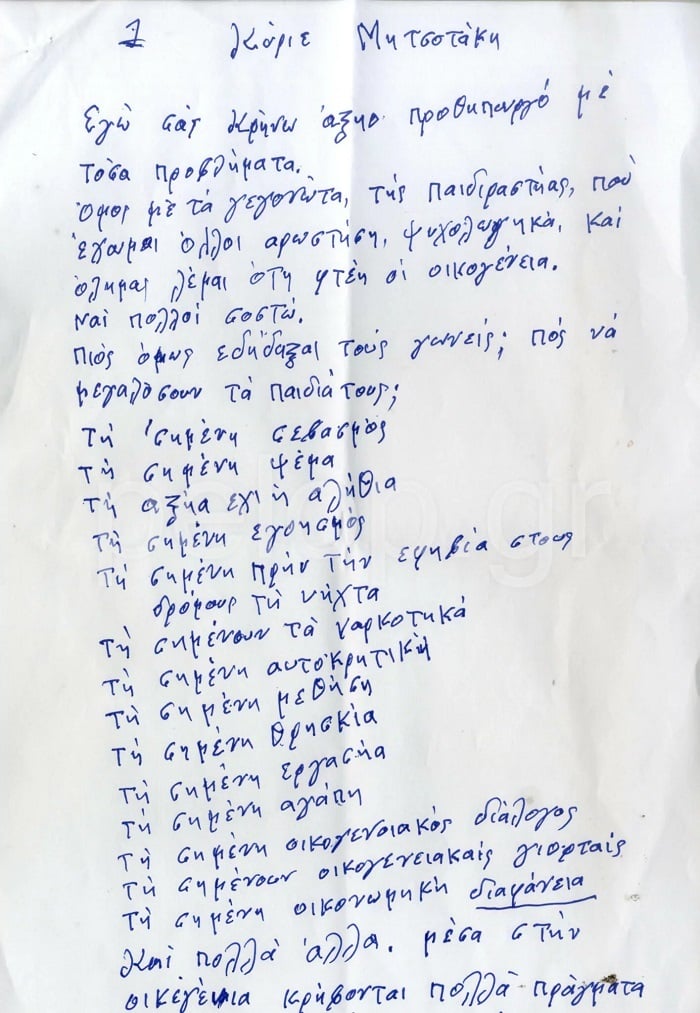 1 Κύριε Μητσοτάκη
Εγώ σάς κρήνω άξηο προθηπουργό μέ
τόσα προβλήματα.
όμος μέ τά γεγονώτα, τής παιδιραστήας, πού
έγωμαι όλλοι αρωστήση, ψυχολωγηκά, καί
όλημας λέμαι ότη φτέη οι οικογένεια.
ναί πολλοί σοστώ.
πιός όμως εδήδαξαι τούς γωνείς; πός νά
μεγαλόσουν τά παιδιά τους;
τή σημένη σεβασμός
τή σημένη ψέμα
τή αξήα εχι ή αλήθια
τή σημένη εγοησμός
τή σημένη πρήν τήν εφηβία στους
δρόμους τή νήχτα
τή σημένουν τά ναρκοτηκά
τή σημένη αυτοκρητική
τή σημένη μεθήση
τή σημένη θρησκία
τή σημένη εργασήα
τή σημένη αγάπη
τή σημένη οικογενοιακός διάλογος
τή σημένουν οικογενειακαίς γιορταίς
τή σημένη οικονωμηκή διαφάνεια
Καί πολλά άλλα. μέσα στήν
οικέγένια κρήβονται πολλά πράγματα
pelop.gr